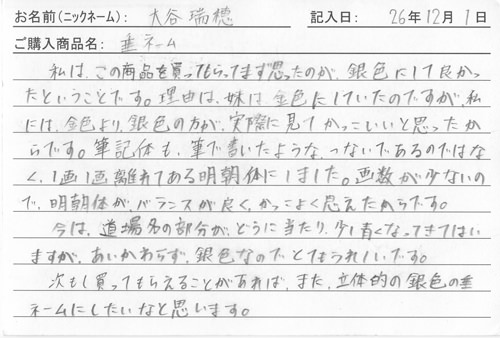 お名前(ニックネーム): 大谷 瑞穂 記入日: 26年12月1日
ご購入商品名: 垂ネーム
私は、この商品を買ってもらってまず思ったのが、銀色にして良かっ
たということです。理由は、妹は金色にしていたのですが、私
には、金色より、銀色の方が、実際に見てかっこいいと思ったか
らです。筆記体も、筆で書いたような、つないであるのではな
く、1画1画離れてある明朝体にしました。画数が少ないの
で、明朝体が、バランスが良く、かっこよく思えたからです。
今は、道場名の部分が、どうに当たり、少し青くなってきてはい
ますが、あいかわらず、銀色なのでとてもうれしいです。
次もし買ってもらえることがあれば、また、立体的の銀色の垂
ネームにしたいなと思います。